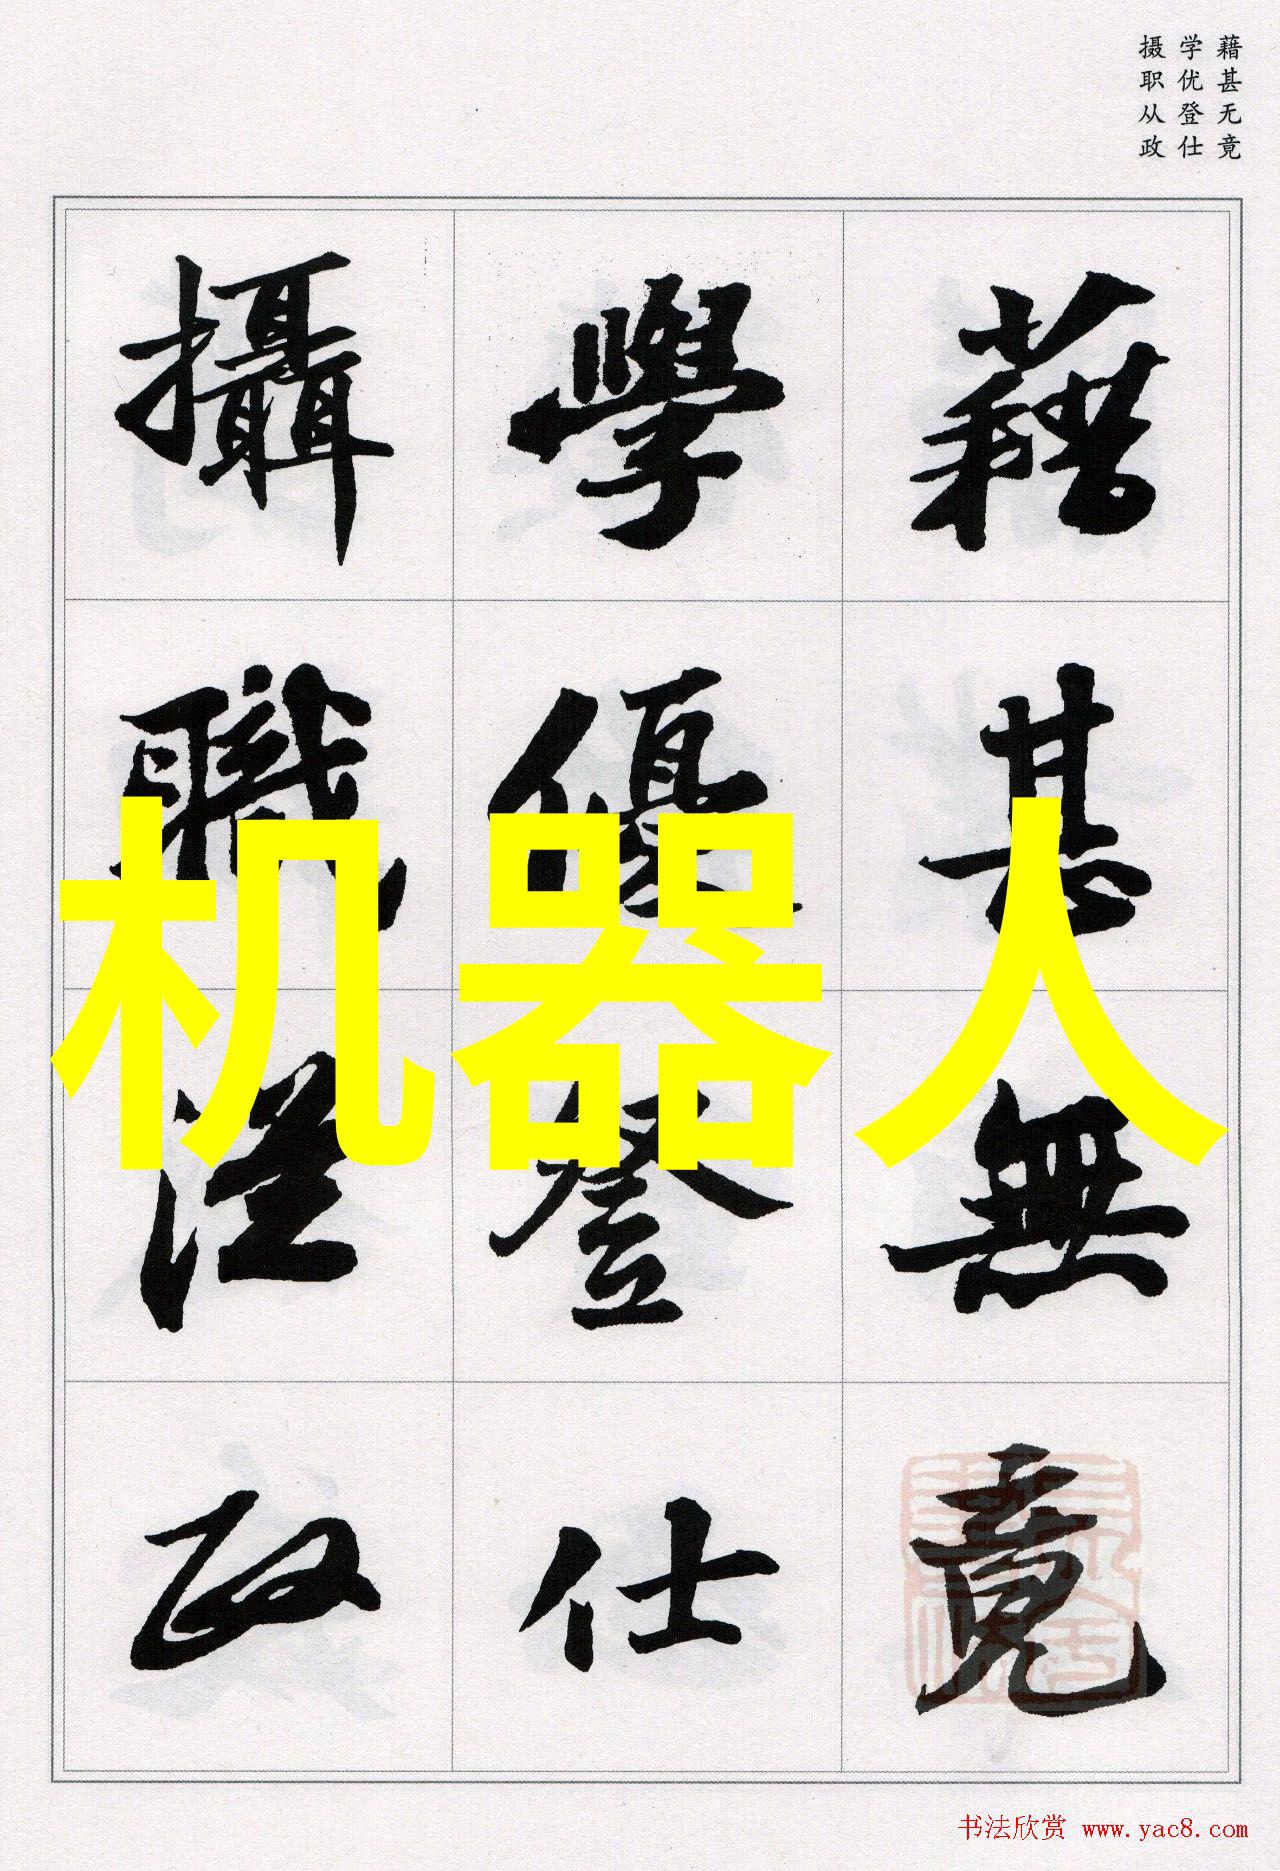 藉甚无竟
学优登仕
摄职从政
藉甚無竟
學優登仕
攝職從政
机器人
书法欣赏 www.yac8.com